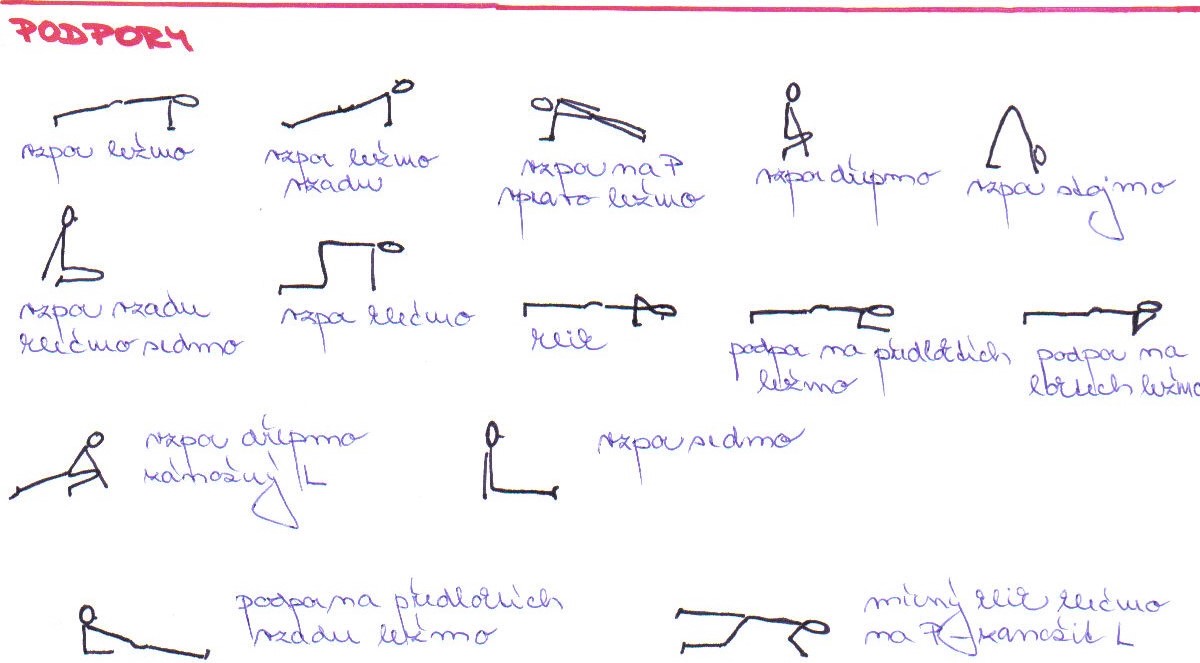 PODPORY
vzpor ležmo
vzpor ležmo
vzadu
vzpor na P
vpravo ležmo
vzpor dřepmo
vzpor stojmo
vzpor vzadu
klečmo sedmo
vzpor klečmo
klik
podpor na předloktích
ležmo
podpor na
loktech ležmo
vzpor dřepmo
zánožný L
vzpor sedmo
podpor na předloktích
vzadu ležmo
mírný klik klečmo
na P – zanožit L